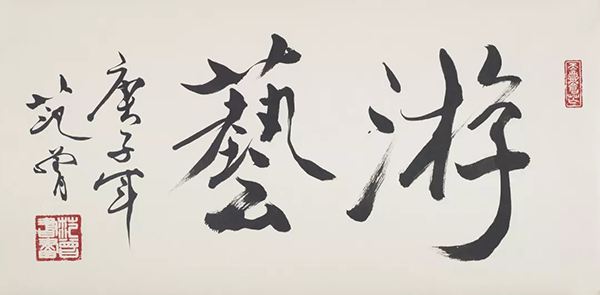 游藝
庚子年
范曾